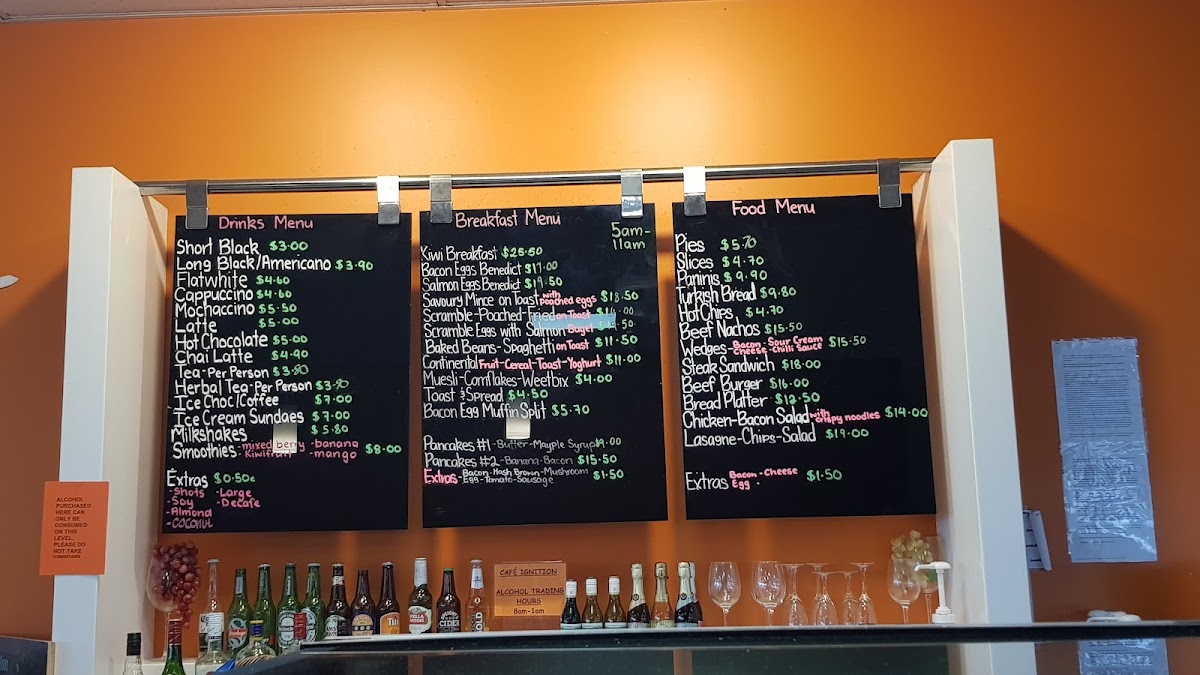 Drinks Menu
Short Black $3.00
Long Black/Americano $3.90
Flatwhite $4.60
Cappuccino $4.60
Mochaccino $5.50
Latte $5.00
Hot Chocolate $5.00
Chai Latte $4.90
Tea-Per Person $3.80
Herbal Tea-Per Person $3.80
Ice Choc/Coffee $7.00
Ice Cream Sundaes $7.00
Milkshakes $5.80
Smoothies-mixed berry -banana
-Kiwifruit -mango $8.00
Extras $0.50c
-Shots -Large
-Soy -Decafe
-Almond
-COCONUT
Breakfast Menu
5am-
11am
Kiwi Breakfast $25.50
Bacon Eggs Benedict $17.00
Salmon Eggs Benedict $19.50
Savoury Mince on Toast with poached eggs $18.50
Scramble-Poached-Fried on Toast
Scramble Eggs with Salmon Bagel
Baked Beans-Spaghetti on Toast $11.50
Continental Fruit-Cereal-Toast-Yoghurt $11.00
Muesli-Cornflakes-Weetbix $4.00
Toast & Spread $4.50
Bacon Egg Muffin Split $5.70
Pancakes #1 -Butter-Mayple Syrup $9.00
Pancakes #2 -Banana-Bacon $15.50
Extras-Bacon-Hash Brown-Mushroom
-Egg-Tomato-Sausage $1.50
Food Menu
Pies $5.70
Slices $4.70
Paninis $9.90
Turkish Bread $9.80
Hot Chips $4.70
Beef Nachos $15.50
Wedges-Bacon-Sour Cream
Cheese-Chilli Sauce $15.50
Steak Sandwich $18.00
Beef Burger $16.00
Bread Platter $12.50
Chicken-Bacon Salad with crispy noodles $14.00
Lasagne-Chips-Salad $19.00
Extras Bacon-Cheese
Egg - $1.50
ALCOHOL
PURCHASED
HERE CAN
ONLY BE
CONSUMED
ON THIS
LEVEL.
PLEASE DO
NOT TAKE
DOWNSTAIRS
CAFÉ IGNITION
ALCOHOL TRADING
HOURS
8am-1am